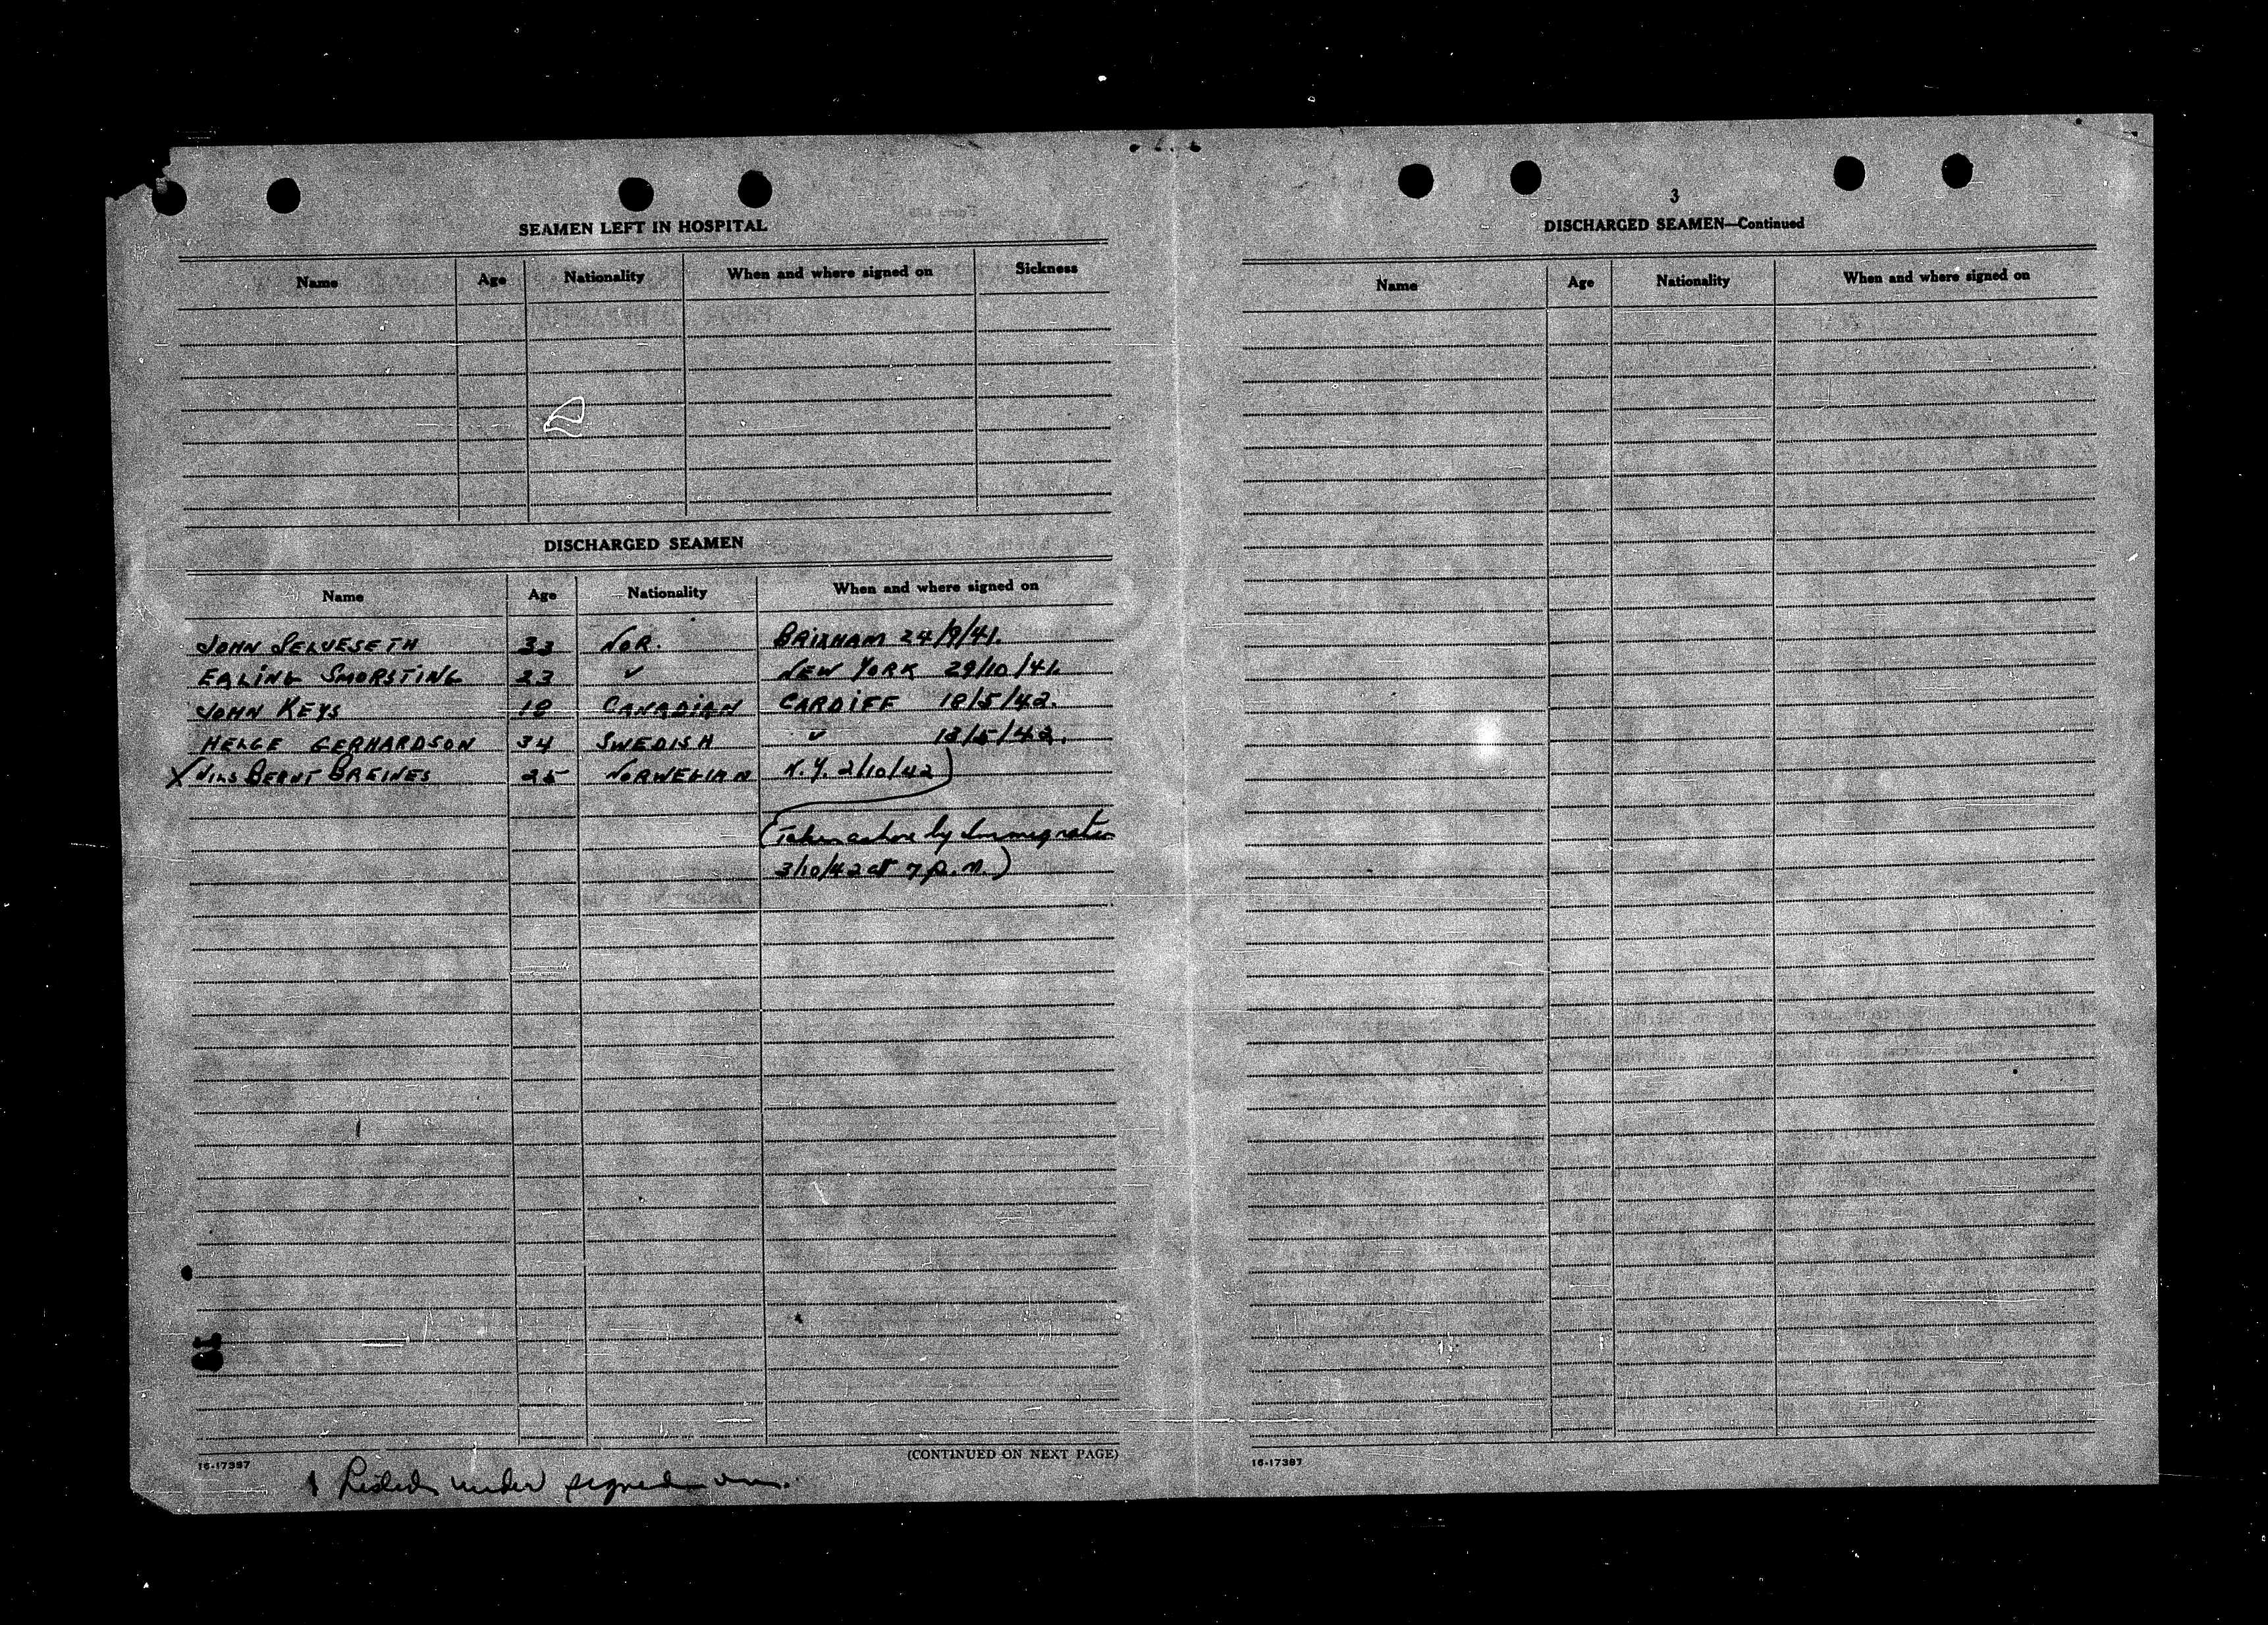 SEAMEN LEFT IN HOSPITAL
Name Age Nationality When and where signed on Sickness
DISCHARGED SEAMEN
Name Age Nationality When and where signed on
JOHN SELVESETH 33 NOR. BRIXHAM 24/9/41.
EALING SMORSTING 23 ✓ NEW YORK 29/10/41.
JOHN KEYS 18 CANADIAN CARDIFF 18/5/42.
HELGE GERHARDSON 34 SWEDISH ✓ 18/5/42.
X NILS BERNT BREINES 25 NORWEGIAN N.Y. 2/10/42)
(Taken ashore by Immigration
3/10/42 at 7 p.m.)
(CONTINUED ON NEXT PAGE)
16-17387
Listed under signed on.
3
DISCHARGED SEAMEN—Continued
Name Age Nationality When and where signed on
16-17387